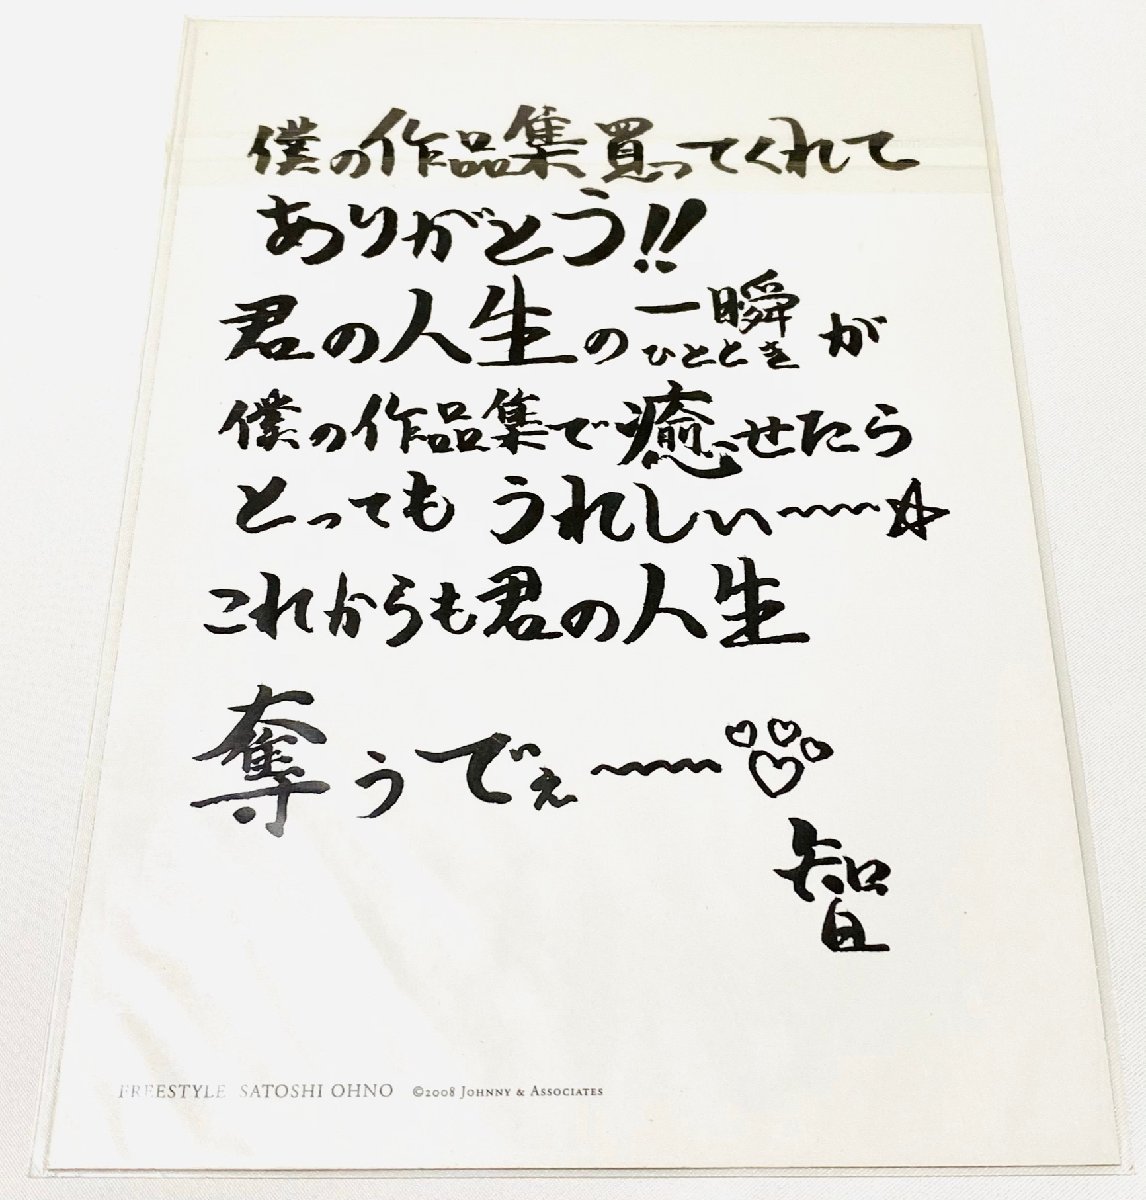 僕の作品集買ってくれて
ありがとう!!
君の人生の一瞬が
ひととき
僕の作品集で癒せたら
とっても うれしぃ〜〜〜☆
これからも君の人生
奪うでぇ〜〜〜♡♡♡♡
智
FREESTYLE SATOSHI OHNO ©2008 JOHNNY & ASSOCIATES